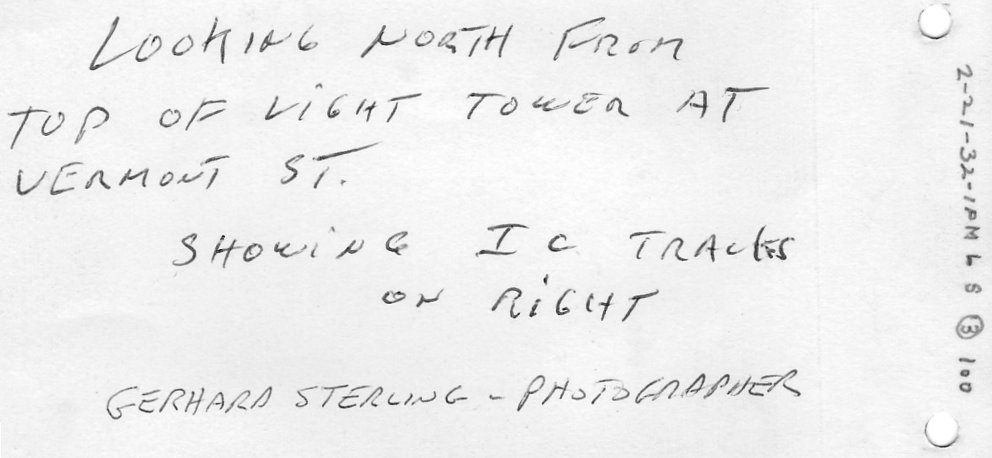 LOOKING NORTH FROM
TOP OF LIGHT TOWER AT
VERMONT ST.
SHOWING I C TRACKS
ON RIGHT
GERHARD STERLING - PHOTOGRAPHER
2-21-32-1PM L S ③ 100